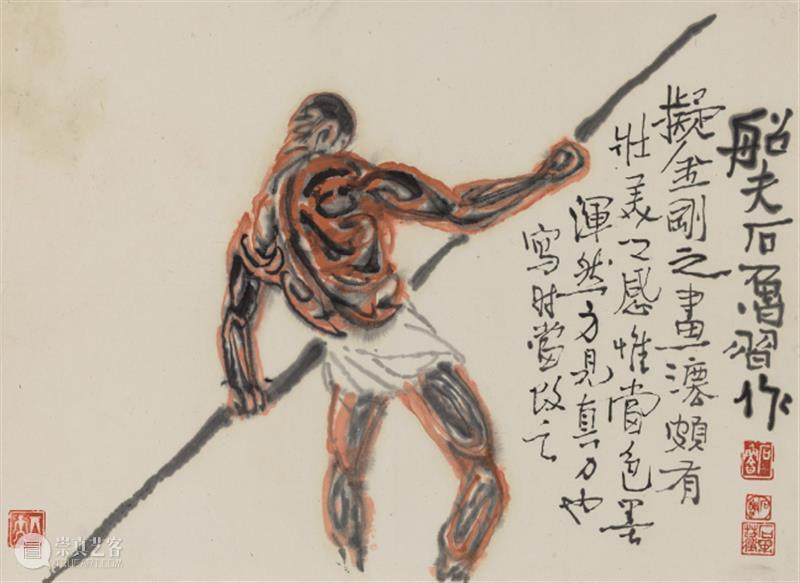 船夫石魯習作
擬金剛之畫灋頗有
壯美之感惟當色墨
渾然方見真力也
寫时當改之
石魯
崇真艺客